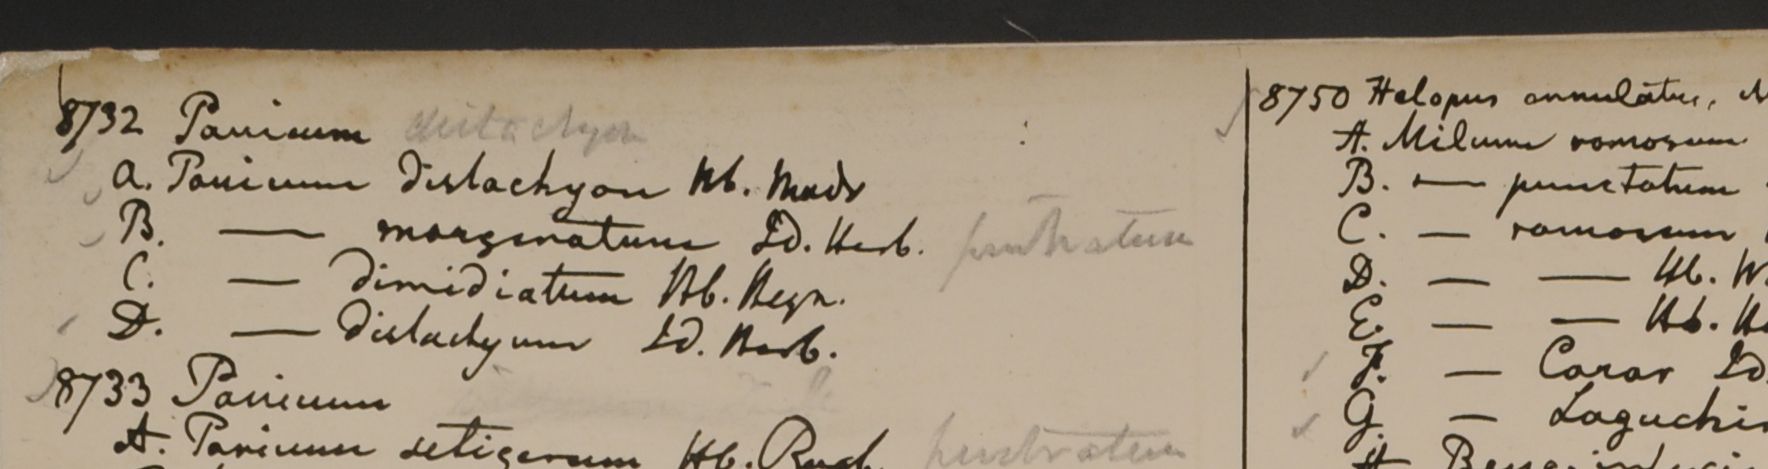 8732 Panicum distachyon
a. Panicum distachyon Hb. Mads
B. — marginatum Id. Herb. prostratum
C. — dimidiatum Hb. Heyn.
D. — distachyum Id. Herb.
8733 Panicum
A. Panicum setigerum Hb. Roxb. prostratum
8750 Helopus annulatus, N
A. Milium ramosum
B. — punctatum
C. — ramosum
D. — — Hb. W.
E. — — Hb. He
F. — Coxar Id.
G. —
H.